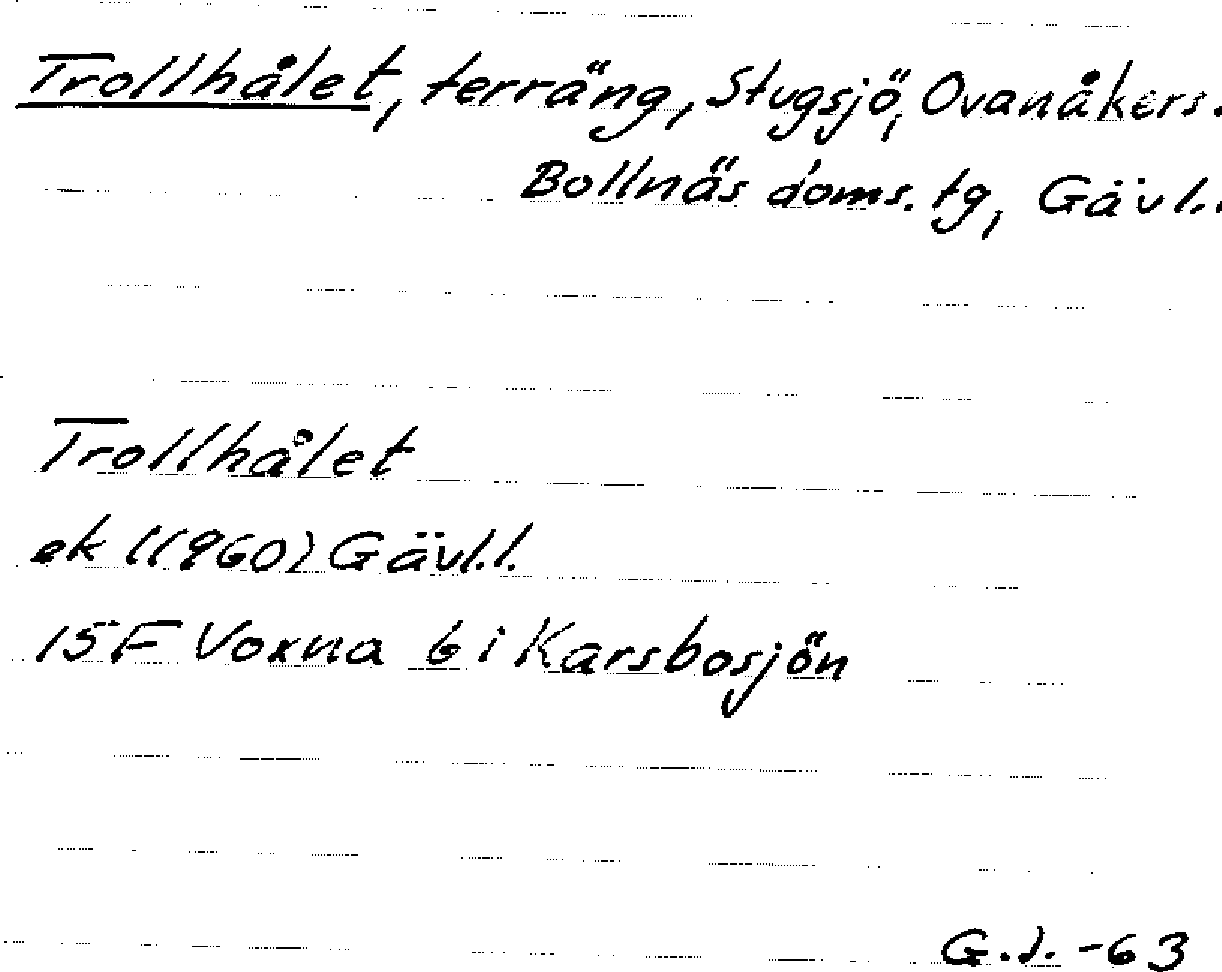 Trollhålet, terräng, Stugsjö, Ovanåkers.
Bollnäs doms. tg, Gävl.
Trollhålet
ek 1(1960) Gävl.l.
15F Voxna 6 i Karsbosjön
G.J. -63